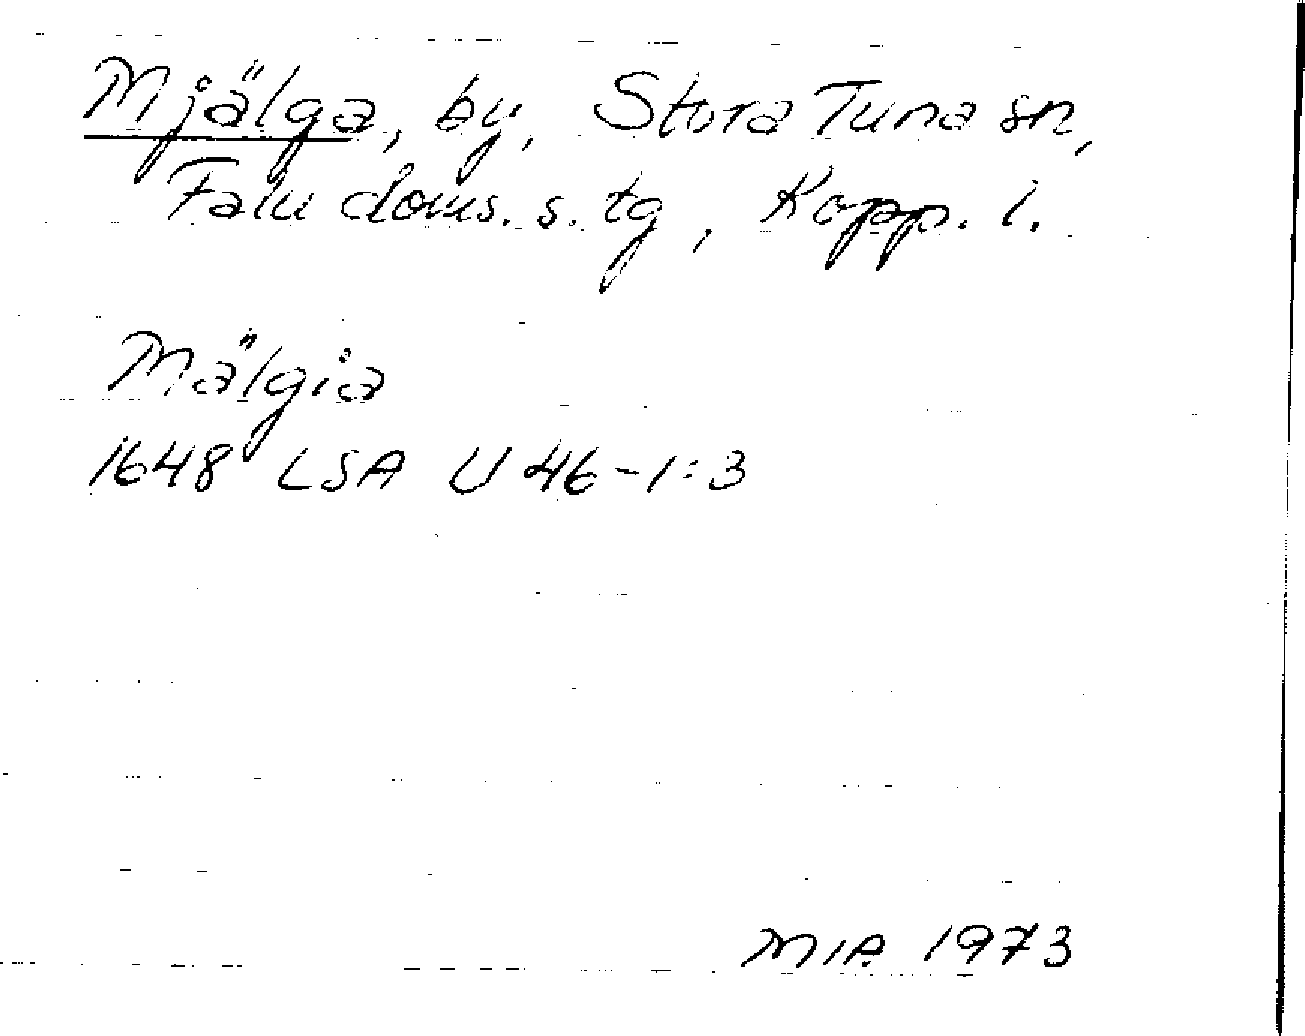 Mjälga, by, Stora Tuna sn,
Falu doms. s. tg, Kopp. l.
Mälgia
1648 LSA U 46-1:3
MIA 1973